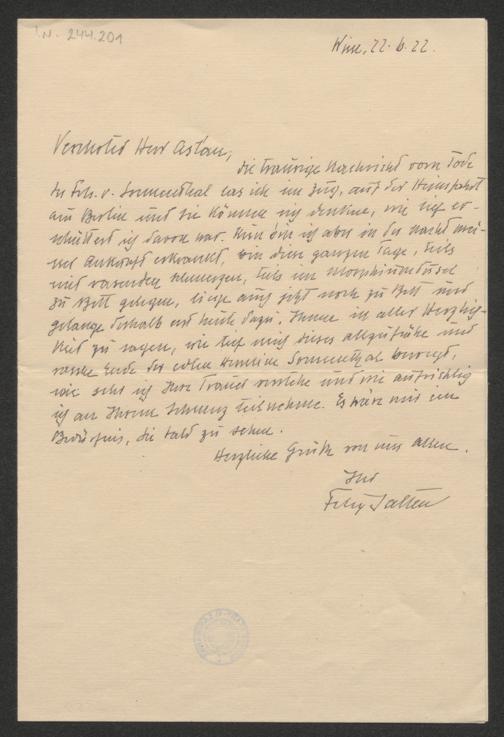 I.N. 244.201
Wien, 22. 6. 22.
Verehrter Herr Aslan,
die traurige Nachricht vom Tode
des Frls. v. Sonnenthal las ich im Zug, auf der Heimfahrt
aus Berlin und Sie können sich denken, wie tief er-
schüttert ich davon war. Nun bin ich aber in der Nacht mei-
ner Ankunft erkrankt, bin diese ganzen Tage, teils
mit rasenden Schmerzen, teils im Morphiumdusel
zu Bett gelegen, liege auch jetzt noch zu Bett und
gelange deshalb erst heute dazu, Ihnen in aller Herzlich-
keit zu sagen, wie tief mich dieses allzufrühe und
rasche Ende der edlen Hermine Sonnenthal bewegt,
wie sehr ich Ihre Trauer verstehe und wie aufrichtig
ich an Ihrem Schmerz teilnehme. Es wäre mir ein
Bedürfnis, Sie bald zu sehen.
Herzliche Grüße von uns allen.
Ihr
Felix Salten